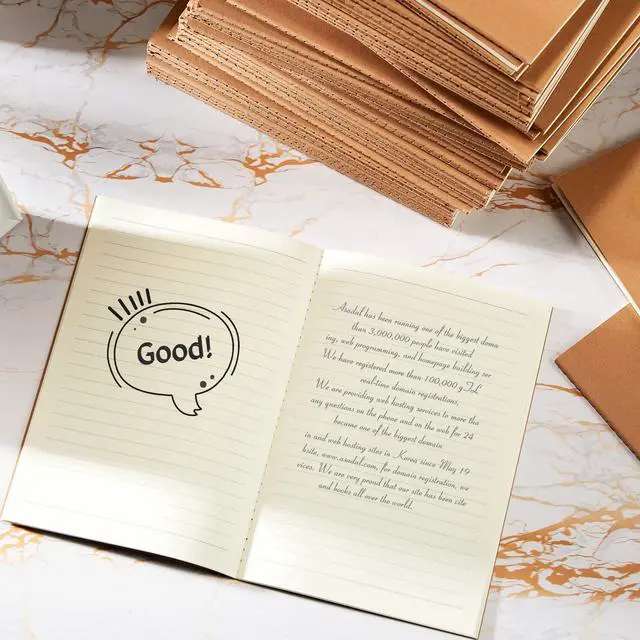 Good!
Asadal has been running one of the biggest doma
than 3,000,000 people have visited
ing, web programming, and homepage building ser
We have registered more than 100,000 y JL
real-time domain registrations,
We are providing web hosting services to more tha
any questions on the phone and on the web for 24
became one of the biggest domain
in and web hosting sites in Korea since May 19
bsite, www.asadal.com, for domain registration, we
vices. We are very proud that our site has been cite
and books all over the world.